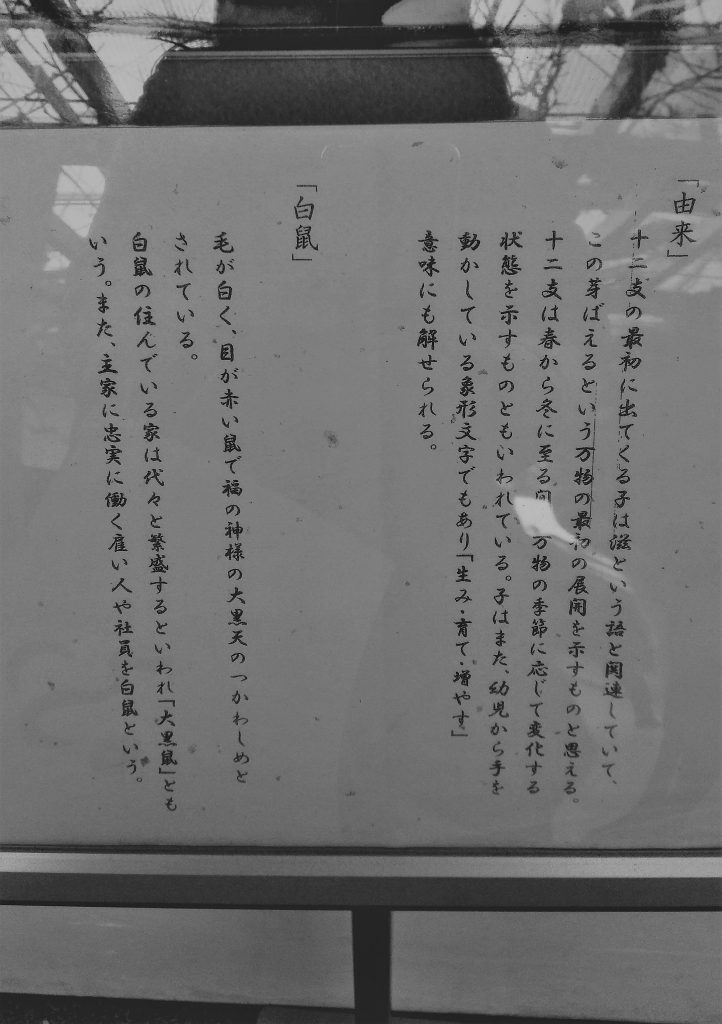 「由来」
十二支の最初に出てくる子は滋という語と関連していて、
この芽ばえるという万物の最初の展開を示すものと思える。
十二支は春から冬に至る間 万物の季節に応じて変化する
状態を示すものともいわれている。子はまた、幼児から手を
動かしている象形文字でもあり「生み・育て・増やす」
意味にも解せられる。
「白鼠」
毛が白く、目が赤い鼠で福の神様の大黒天のつかわしめと
されている。
白鼠の住んでいる家は代々と繁盛するといわれ「大黒鼠」とも
いう。また、主家に忠実に働く雇い人や社員を白鼠という。